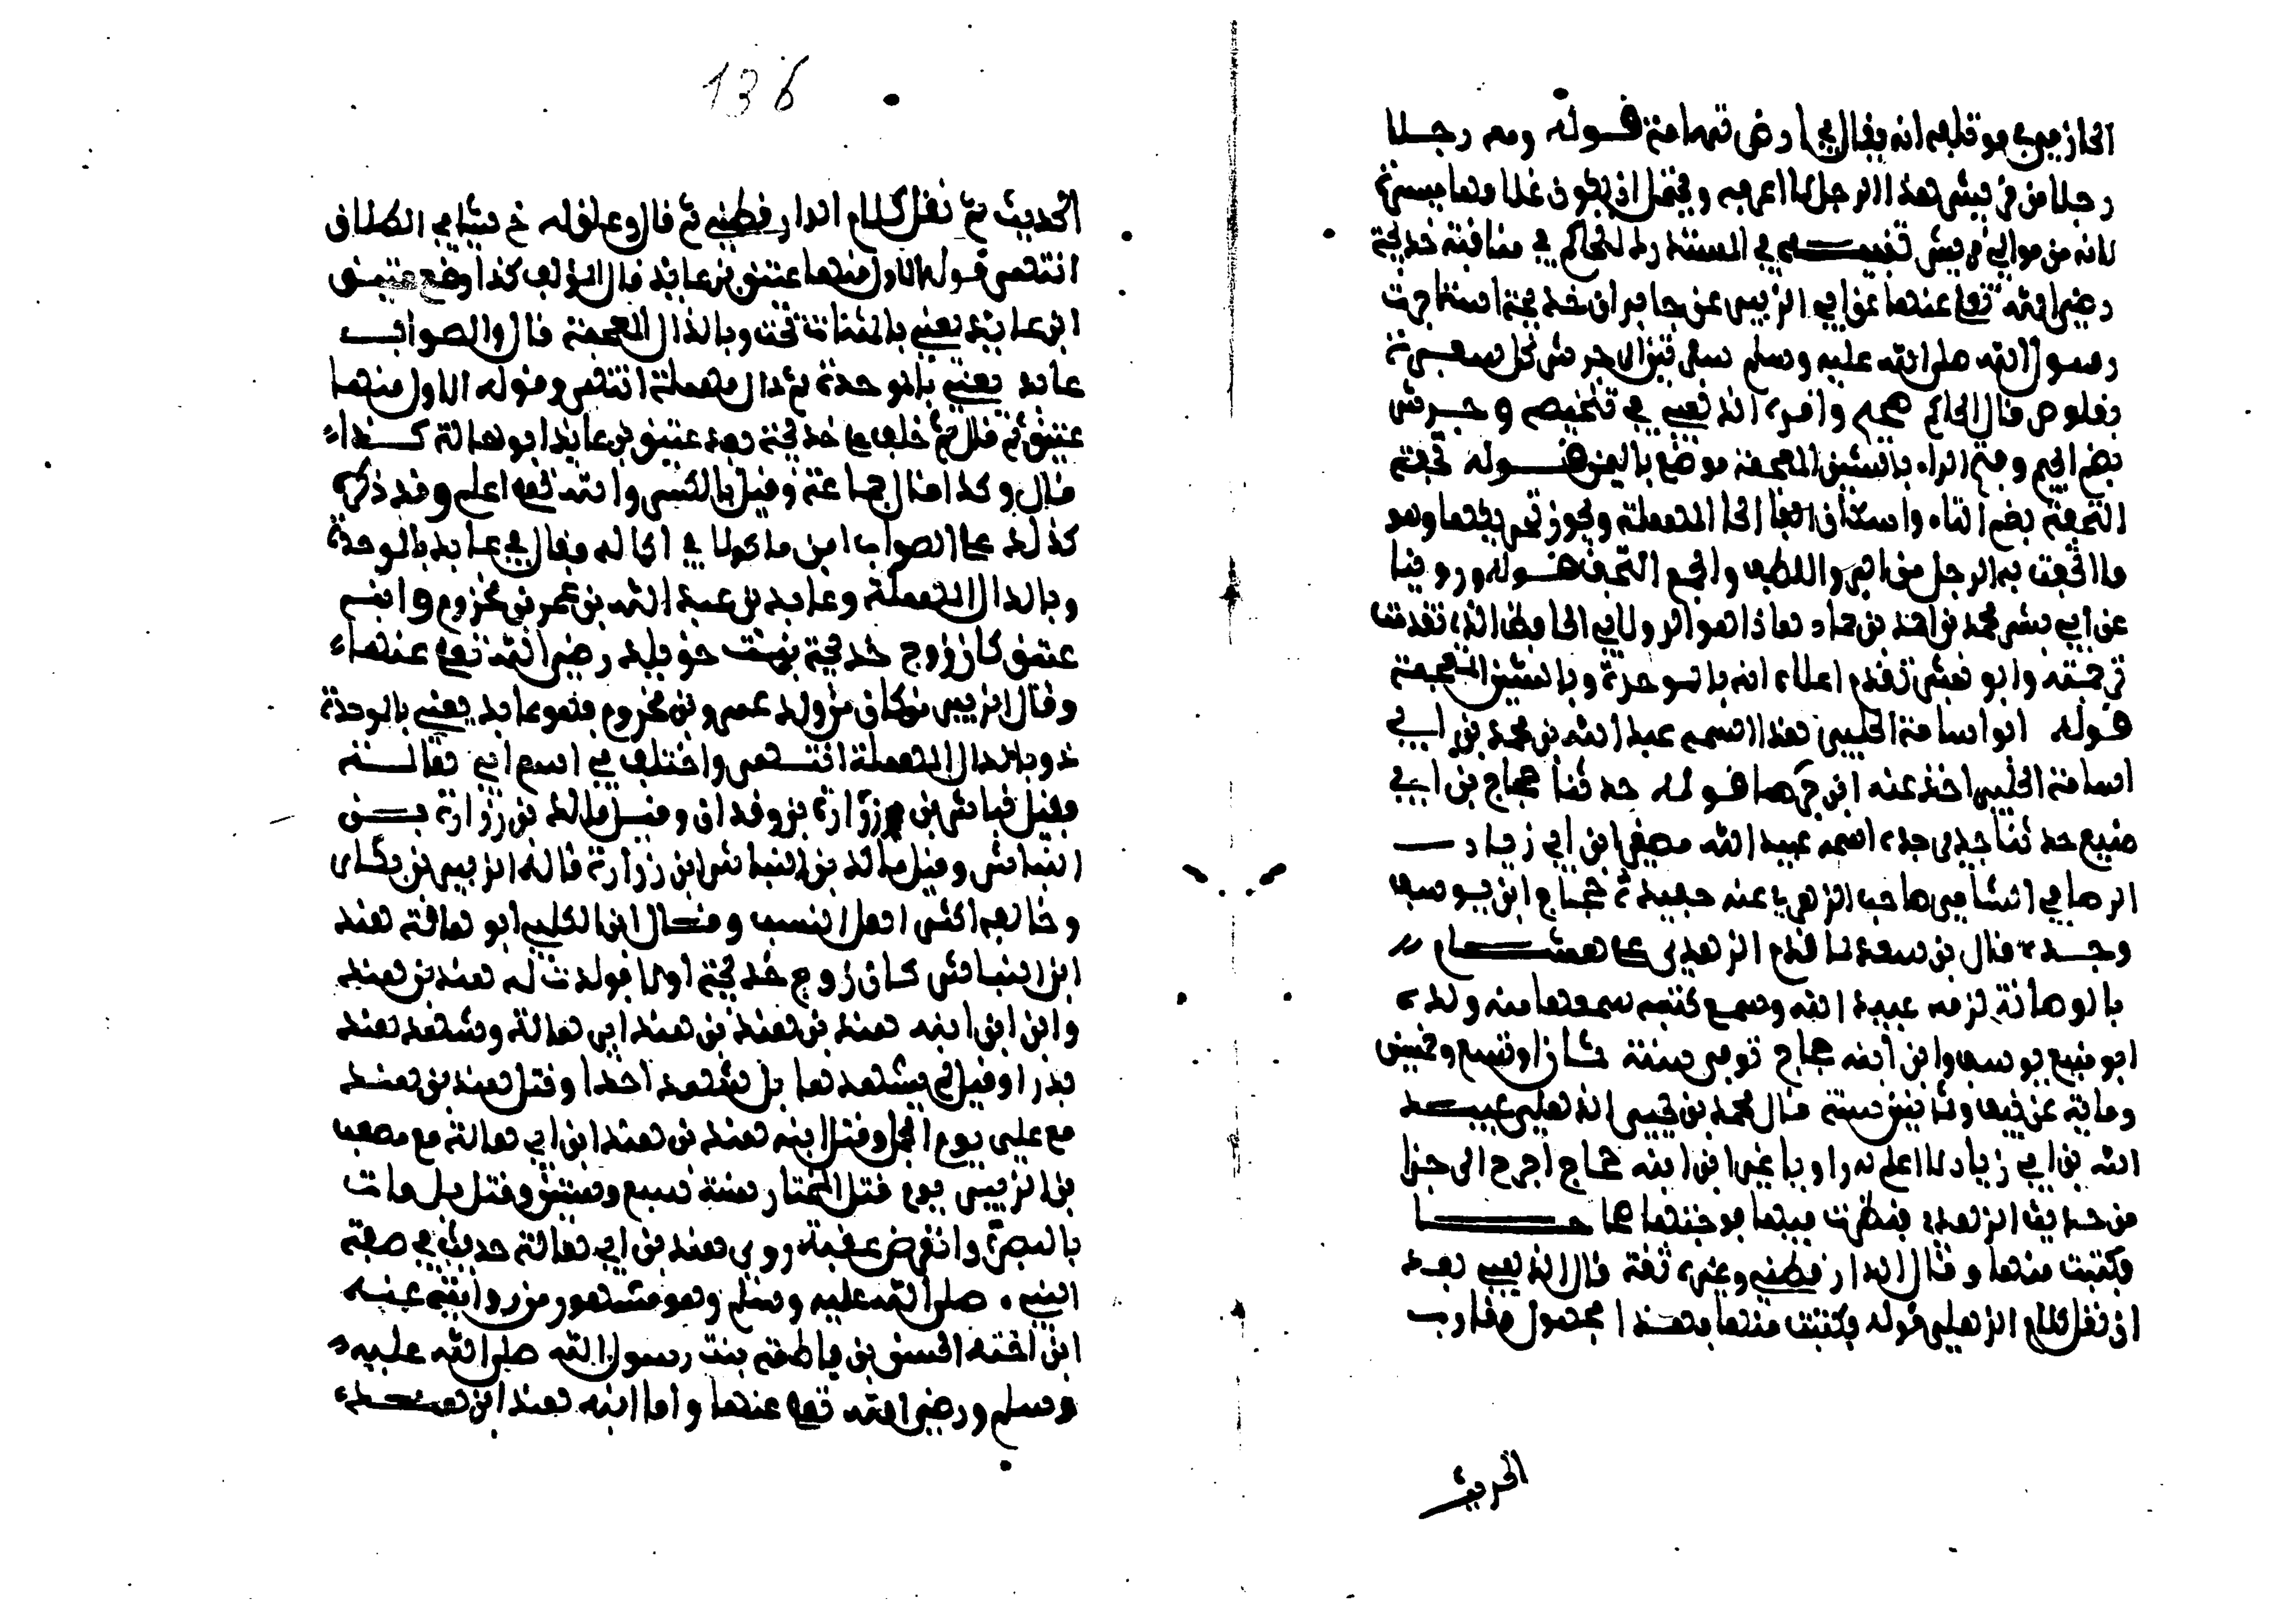 الحازمي في موتلفه انه يقال في ارض تهامة قوله ومعه رجلا
رجلا من قريش هذا الرجل لا اعرفه ويحتمل ان يكون غلامها ميسرة
لانه من موالي قريش تنبيه في المستدرك للحاكم في مناقب خديجة
رضي الله تعلى عنها عن ابي الزبير عن جابر ان خديجة استاجرت
رسول الله صلى الله عليه وسلم سفرتين الى جرش كل سفرة
بقلوص قال الحاكم صحيح واقره الذهبي في تلخيصه وجرش
بضم الجيم وفتح الراء بالشين المعجمة موضع باليمن قوله تحفة
التحفة بضم التاء واسكان الحا المهملة ويجوز تحريكها وهو
ما اتحفت به الرجل من البر واللطف والجمع التحف قوله وروينا
عن ابي بشر محمد بن احمد بن حماد هذا هو الدولابي الحافظ الذي تقدمت
ترجمته وابو بشر تقدم اعلاه انه بالموحدة وبالشين المعجمة
قوله ابو اسامة الحلبي هذا اسمه عبد الله بن محمد بن ابي
اسامة الحلبي اخذ عنه ابن قوله حدثنا حجاج بن ابي
منيع حدثنا جدي جده اسمه عبيد الله مصغر ابن ابي زياد
الرصافي الشامي صاحب الزهري عنه حفيده حجاج ابن يوسف
وجده قال بن سعد لما قدم الزهري على هشام
بالرصافة لزمه عبيد الله وسمع كتبه سمعها منه ولده
ابو منيع يوسف وابن ابنه حجاج توفي سنة ثمان او تسع وخمسين
وماية عن نيف وثمانين سنة قال محمد بن يحيى الذهلي عبيد
الله بن ابي زياد لا اعلم له راويا غير ابن ابنه حجاج اخرج الى جزا
من حديث الزهري فنظرت فيها فوجدتها صحاحا
فكتبت منها وقال الدارقطني وغيره ثقة قال الذهبي بعد
ان نقل كلام الذهلي قوله فكتبت منها فهذا مجهول مقارب
الحديث
136
الحديث ثم نقل كلام الدارقطني ثم قال وعلق له خ شيا في الطلاق
انتهى قوله الاول منهما عتيق بن عايذ قال المؤلف كذا وقع عتيق
ابن عايذ يعني بالمثناة تحت وبالذال المعجمة قال والصواب
عابد يعني بالموحدة ثم دال مهملة انتهى وقوله الاول منهما
عتيق ثم قال ثم خلف على خديجة بعد عتيق بن عايذ ابو هالة كذا
قال وكذا قال جماعة وقيل بالعكس والله تعلى اعلم وقد ذكره
كذلك على الصواب ابن ماكولا في اكماله فقال في عابد بالموحدة
وبالدال المهملة وعابد بن عبد الله بن عمر بن مخزوم وابنه
عتيق كان زوج خديجة بنت خويلد رضي الله تعلى عنها
وقال الزبير من كان من ولد عمر بن مخزوم فهو عابد يعني بالموحدة
وبالدال المهملة انتهى واختلف في اسم ابي هالة
فقيل نباش بن زرارة بن وقدان وقيل مالك بن زرارة بن
النباش وقيل مالك بن النباش ابن زرارة قاله الزبير بن بكار
وخالفه اكثر اهل النسب وقال ابن الكلبي ابو هالة هند
ابن النباش كان زوج خديجة اولا فولدت له هند بن هند
وابن ابن ابنه هند بن هند بن هند ابي هالة وشهد هند
بدرا وقيل لم يشهدها بل شهد احدا وقتل هند بن هند
مع علي يوم الجمل وقتل ابنه هند بن هند ابن ابي هالة مع مصعب
بن الزبير يوم قتل المختار سنة سبع وستين وقتل بل مات
بالبصرة وانقرض عقبه روى هند بن ابي هالة حديث في صفة
النبي صلى الله عليه وسلم وهو مشهور من رواية عنه
ابن اخته الحسن بن فاطمة بنت رسول الله صلى الله عليه
وسلم ورضي الله تعلى عنها واما ابنه هند ابن هند